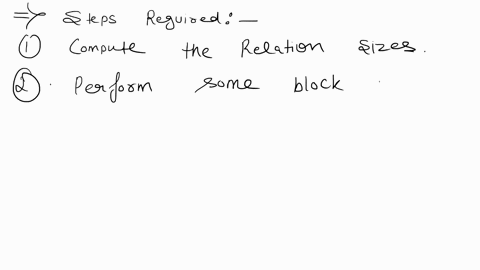 => Steps Required:—
① Compute the Relation Sizes.
② Perform some block